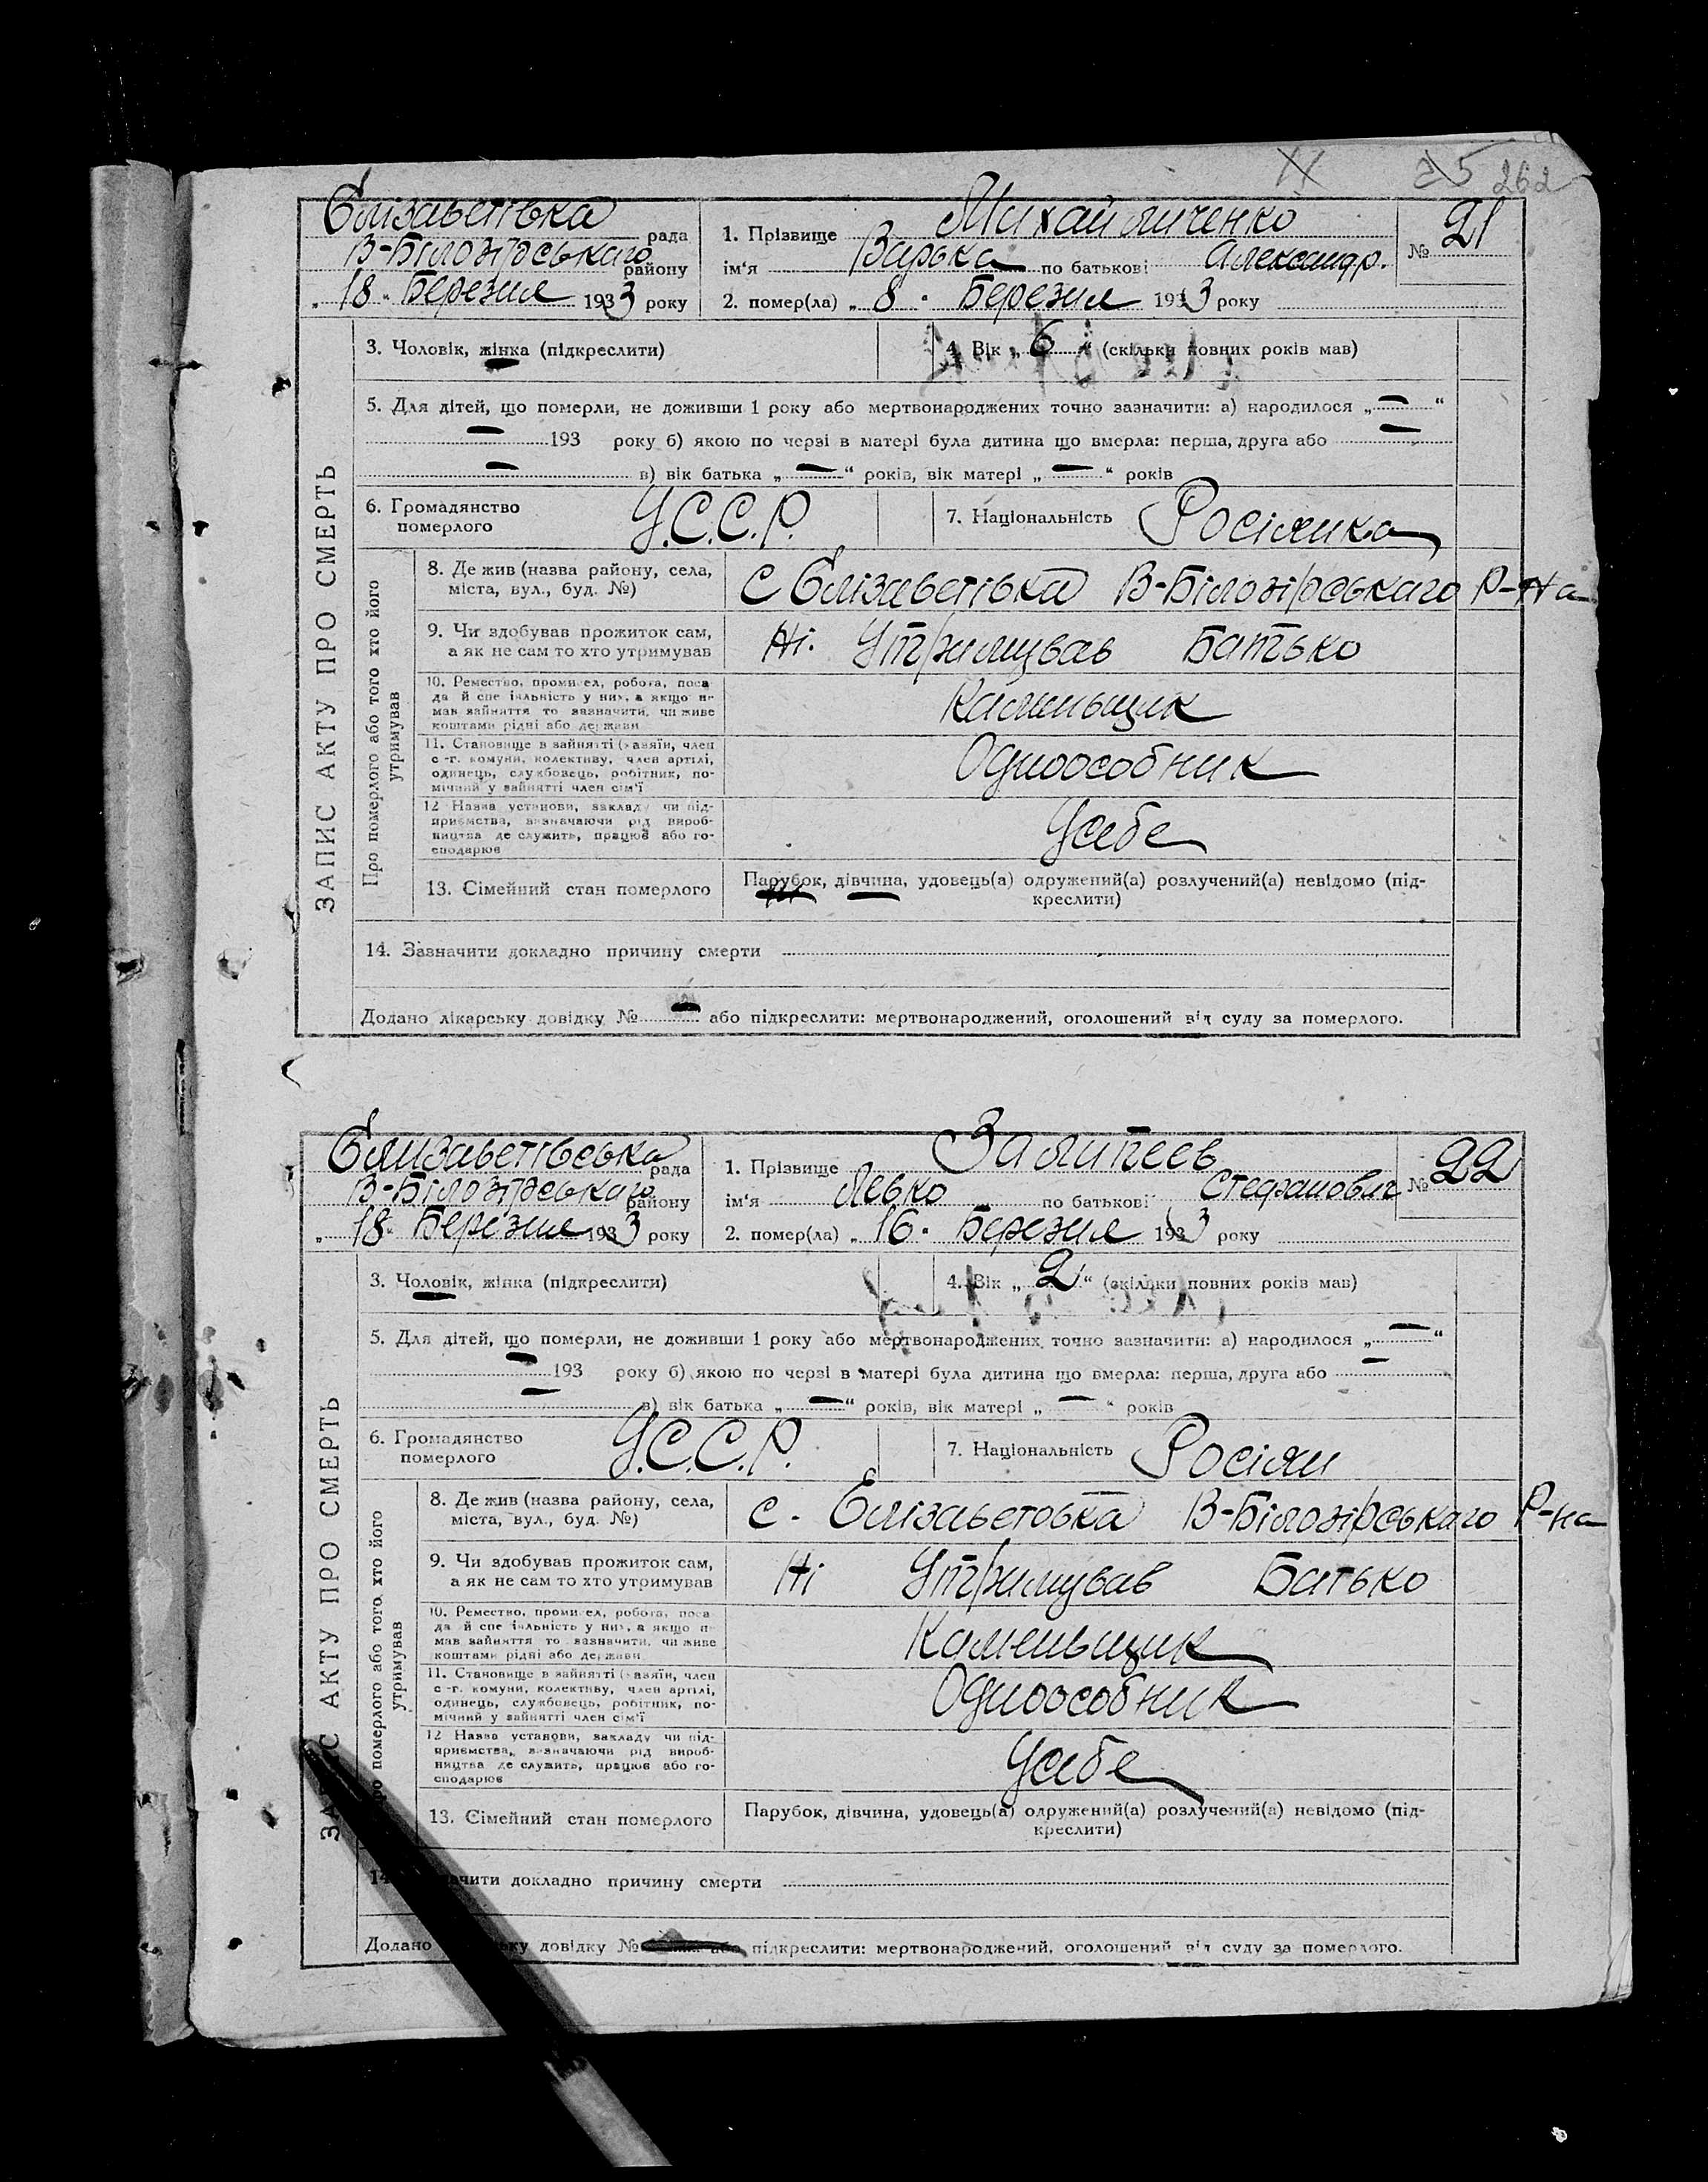 25 262
Єлізаветівка рада
В-Білозірського району
„18“ Березня 1933 року
1. Прізвище Михайличенко
ім‘я Варька по батькові Александр.
2. помер(ла) „8“ Березня 1933 року
№ 21
ЗАПИС АКТУ ПРО СМЕРТЬ
3. Чоловік, жінка (підкреслити)
4. Вік „6“ (скільки повних років мав)
5. Для дітей, що померли, не доживши 1 року або мертвонароджених точно зазначити: а) народилося „—“
— 193 року б) якою по черзі в матері була дитина що вмерла: перша, друга або —
— в) вік батька „—“ років, вік матері „—“ років
6. Громадянство померлого У.С.С.Р.
7. Національність Росіянка
Про померлого або того хто його утримував
8. Де жив (назва району, села,
міста, вул., буд. №)
С Єлізаветівка В-Білозірського Р-На
9. Чи здобував прожиток сам,
а як не сам то хто утримував
Ні. Утримував Батько
10. Ремество, промисел, робота, поса-
да й спеціальність у них, а якщо не
мав зайняття то зазначити, чи живе
коштами рідні або держави
Каменьщик
11. Становище в зайнятті (хазяїн, член
с.-г. комуни, колективу, член артілі,
одинець, службовець, робітник, по-
мічний у зайнятті член сім‘ї
Одноособник
12 Назва установи, закладу чи під-
приємства, визначаючи рід вироб-
ництва де служить, працює або го-
сподарює
Усебе
13. Сімейний стан померлого
Парубок, дівчина, удовець(а) одружений(а) розлучений(а) невідомо (під-
креслити)
14. Зазначити докладно причину смерти
Додано лікарську довідку № — або підкреслити: мертвонароджений, оголошений від суду за померлого.
Єлизаветівська рада
В-Білозірського району
„18“ Березня 1933 року
1. Прізвище
ім‘я Левко по батькові Стефанович
2. помер(ла) „16“ Березня 1933 року
№ 22
ЗАПИС АКТУ ПРО СМЕРТЬ
3. Чоловік, жінка (підкреслити)
4. Вік „2“ (скільки повних років мав)
5. Для дітей, що померли, не доживши 1 року або мертвонароджених точно зазначити: а) народилося „—“
— 193 року б) якою по черзі в матері була дитина що вмерла: перша, друга або —
— в) вік батька „—“ років, вік матері „—“ років
6. Громадянство померлого У.С.С.Р.
7. Національність Росіян
Про померлого або того, хто його утримував
8. Де жив (назва району, села,
міста, вул., буд. №)
с. Єлізаветовка В-Білозірського Р-на
9. Чи здобував прожиток сам,
а як не сам то хто утримував
Ні Утримував Батько
10. Ремество, промисел, робота, поса-
да й спеціальність у них, а якщо не
мав зайняття то зазначити, чи живе
коштами рідні або держави
Каменьщик
11. Становище в зайнятті (хазяїн, член
с.-г. комуни, колективу, член артілі,
одинець, службовець, робітник, по-
мічний у зайнятті член сім‘ї
Одноособник
12 Назва установи, закладу чи під-
приємства, визначаючи рід вироб-
ництва де служить, працює або го-
сподарює
Усебе
13. Сімейний стан померлого
Парубок, дівчина, удовець(а) одружений(а) розлучений(а) невідомо (під-
креслити)
докладно причину смерти
Додано довідку № або підкреслити: мертвонароджений, оголошений від суду за померлого.